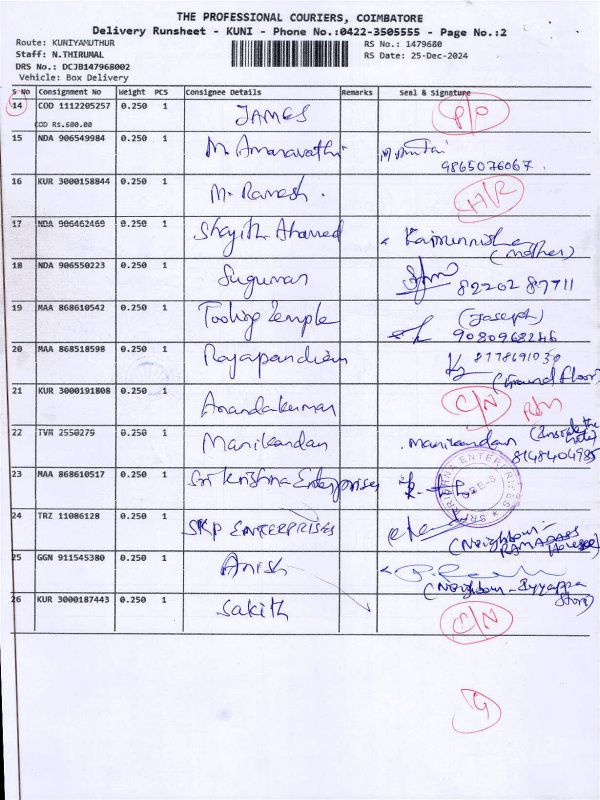 THE PROFESSIONAL COURIERS, COIMBATORE
Delivery Runsheet - KUNI - Phone No.:0422-3505555 - Page No.:2
Route: KUNIYAMUTHUR
Staff: N.THIRUMAL
DRS No.: DCJB147968002
Vehicle: Box Delivery
RS No.: 1479680
RS Date: 25-Dec-2024
S No Consignment No Weight PCS Consignee Details Remarks Seal & Signature
14 COD 1112205257 0.250 1 JAMES
COD Rs.600.00
15 NDA 906549984 0.250 1 M. Amaravathi
9865076067.
16 KUR 3000158844 0.250 1 M. Ramesh. H/R
17 NDA 906462469 0.250 1 Shayith Ahamed Kairunnisha
(mother)
18 NDA 906550223 0.250 1 Sugumar 82202 87711
19 MAA 868610542 0.250 1 Tooling Temple (Joseph)
9080968246
20 MAA 868518598 0.250 1 Rajapandian 8778691030
(Ground floor)
21 KUR 3000191808 0.250 1 Anandakumar C/N
22 TVM 2550279 0.250 1 Manikandan . Manikandan (Inside the
8148404985
23 MAA 868610517 0.250 1 Sri Krishna Enterprises
SRI KRISHNA ENTERPRISES
24 TRZ 11086128 0.250 1 SKP ENTERPRISES
(Neighbour -
RAMADASS
25 GGN 911545380 0.250 1 Anish
(Neighbour - Iyyappa
Store)
26 KUR 3000187443 0.250 1 Sakith C/N